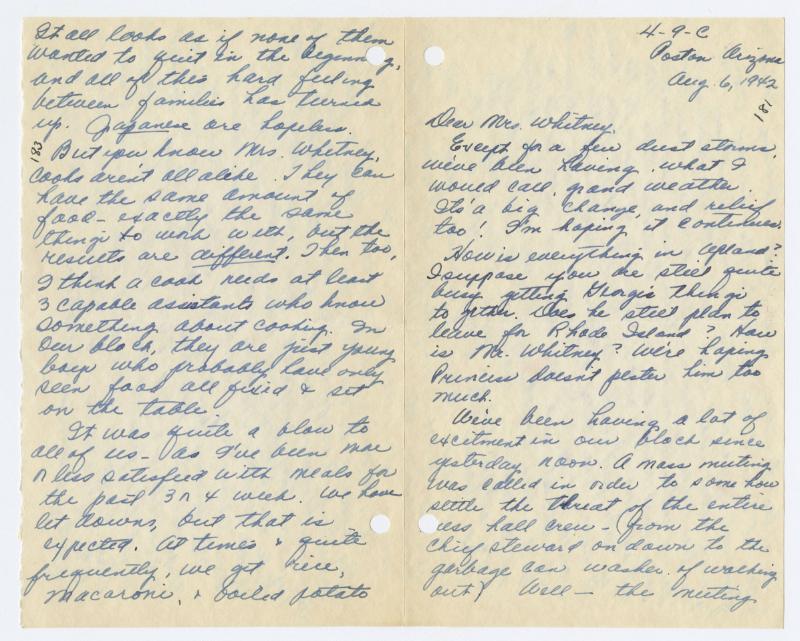 It all looks as if none of them
wanted to quit in the beginning,
and all of this hard feeling
between families has turned
up. Japanese are hopeless.
183
But you know Mrs. Whitney,
cooks aren't all alike. They can
have the same amount of
food - exactly the same
things to work with, but the
results are different. Then too,
I think a cook needs at least
3 capable assistants who know
something about cooking. In
our block, they are just young
boys who probably have only
seen food all fixed & set
on the table.
It was quite a blow to
all of us - as I've been more
r less satisfied with meals for
the past 3 r 4 week. We have
let downs, but that is
expected. At times & quite
frequently, we get rice,
macaroni, & boiled potato
4-9-C
Poston Arizona
Aug. 6, 1942
181
Dear Mrs. Whitney,
Except for a few dust storms,
we've been having, what I
would call, grand weather.
It's a big change, and relief
too! I'm hoping it continues.
How is everything in Upland?
I suppose you are still quite
busy getting Georgie things
together. Does he still plan to
leave for Rhode Island? How
is Mr. Whitney? We're hoping
Princess doesn't pester him too
much.
We've been having a lot of
excitment in our block since
yesterday noon. A mass meeting
was called in order to some how
settle the threat of the entire
mess hall crew - (from the
chief steward on down to the
garbage can washer of walking
out) Well - the meeting